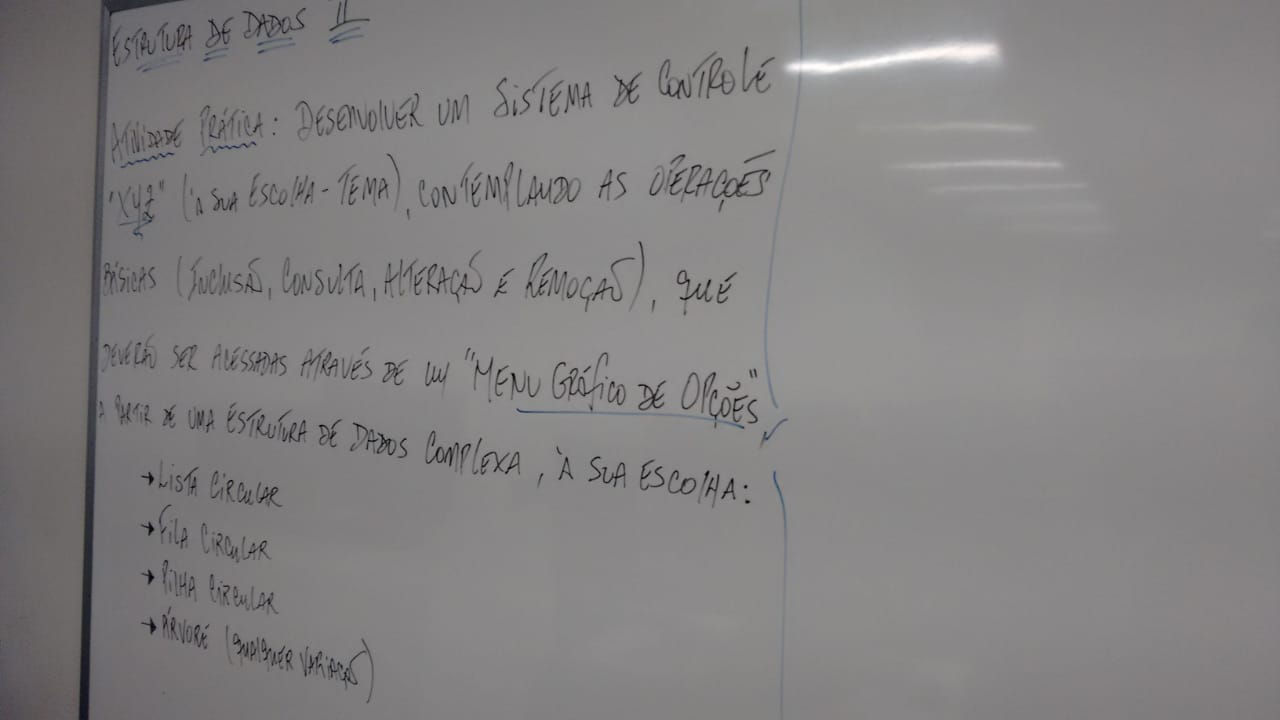 ESTRUTURA DE DADOS II
ATIVIDADE PRÁTICA: DESENVOLVER UM SISTEMA DE CONTROLE
"XYZ" (À SUA ESCOLHA - TEMA), CONTEMPLANDO AS OPERAÇÕES
BÁSICAS (INCLUSÃO, CONSULTA, ALTERAÇÃO E REMOÇÃO), QUE
DEVERÃO SER ACESSADAS ATRAVÉS DE UM "MENU GRÁFICO DE OPÇÕES"
A PARTIR DE UMA ESTRUTURA DE DADOS COMPLEXA, À SUA ESCOLHA:
→ LISTA CIRCULAR
→ FILA CIRCULAR
→ PILHA CIRCULAR
→ ÁRVORE (QUALQUER VARIAÇÃO)